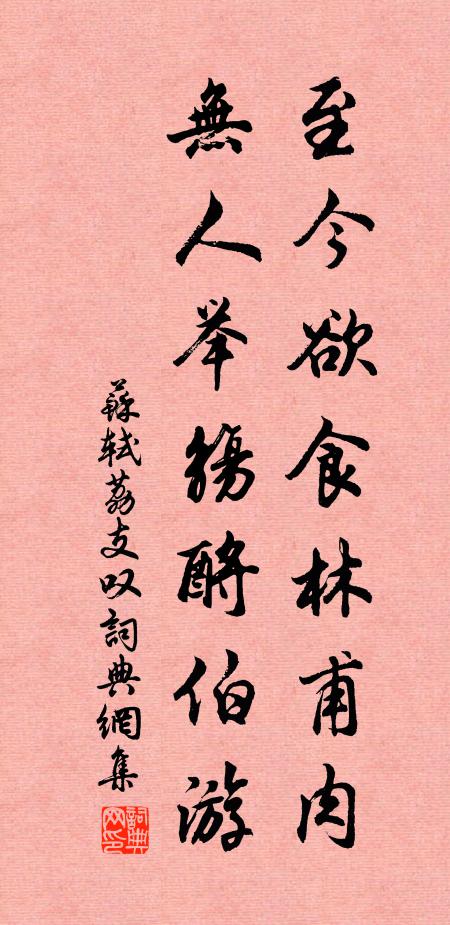 至今欲食林甫肉
無人举觴酹伯游
蘇轼荔支叹詞典網集
詞典网印